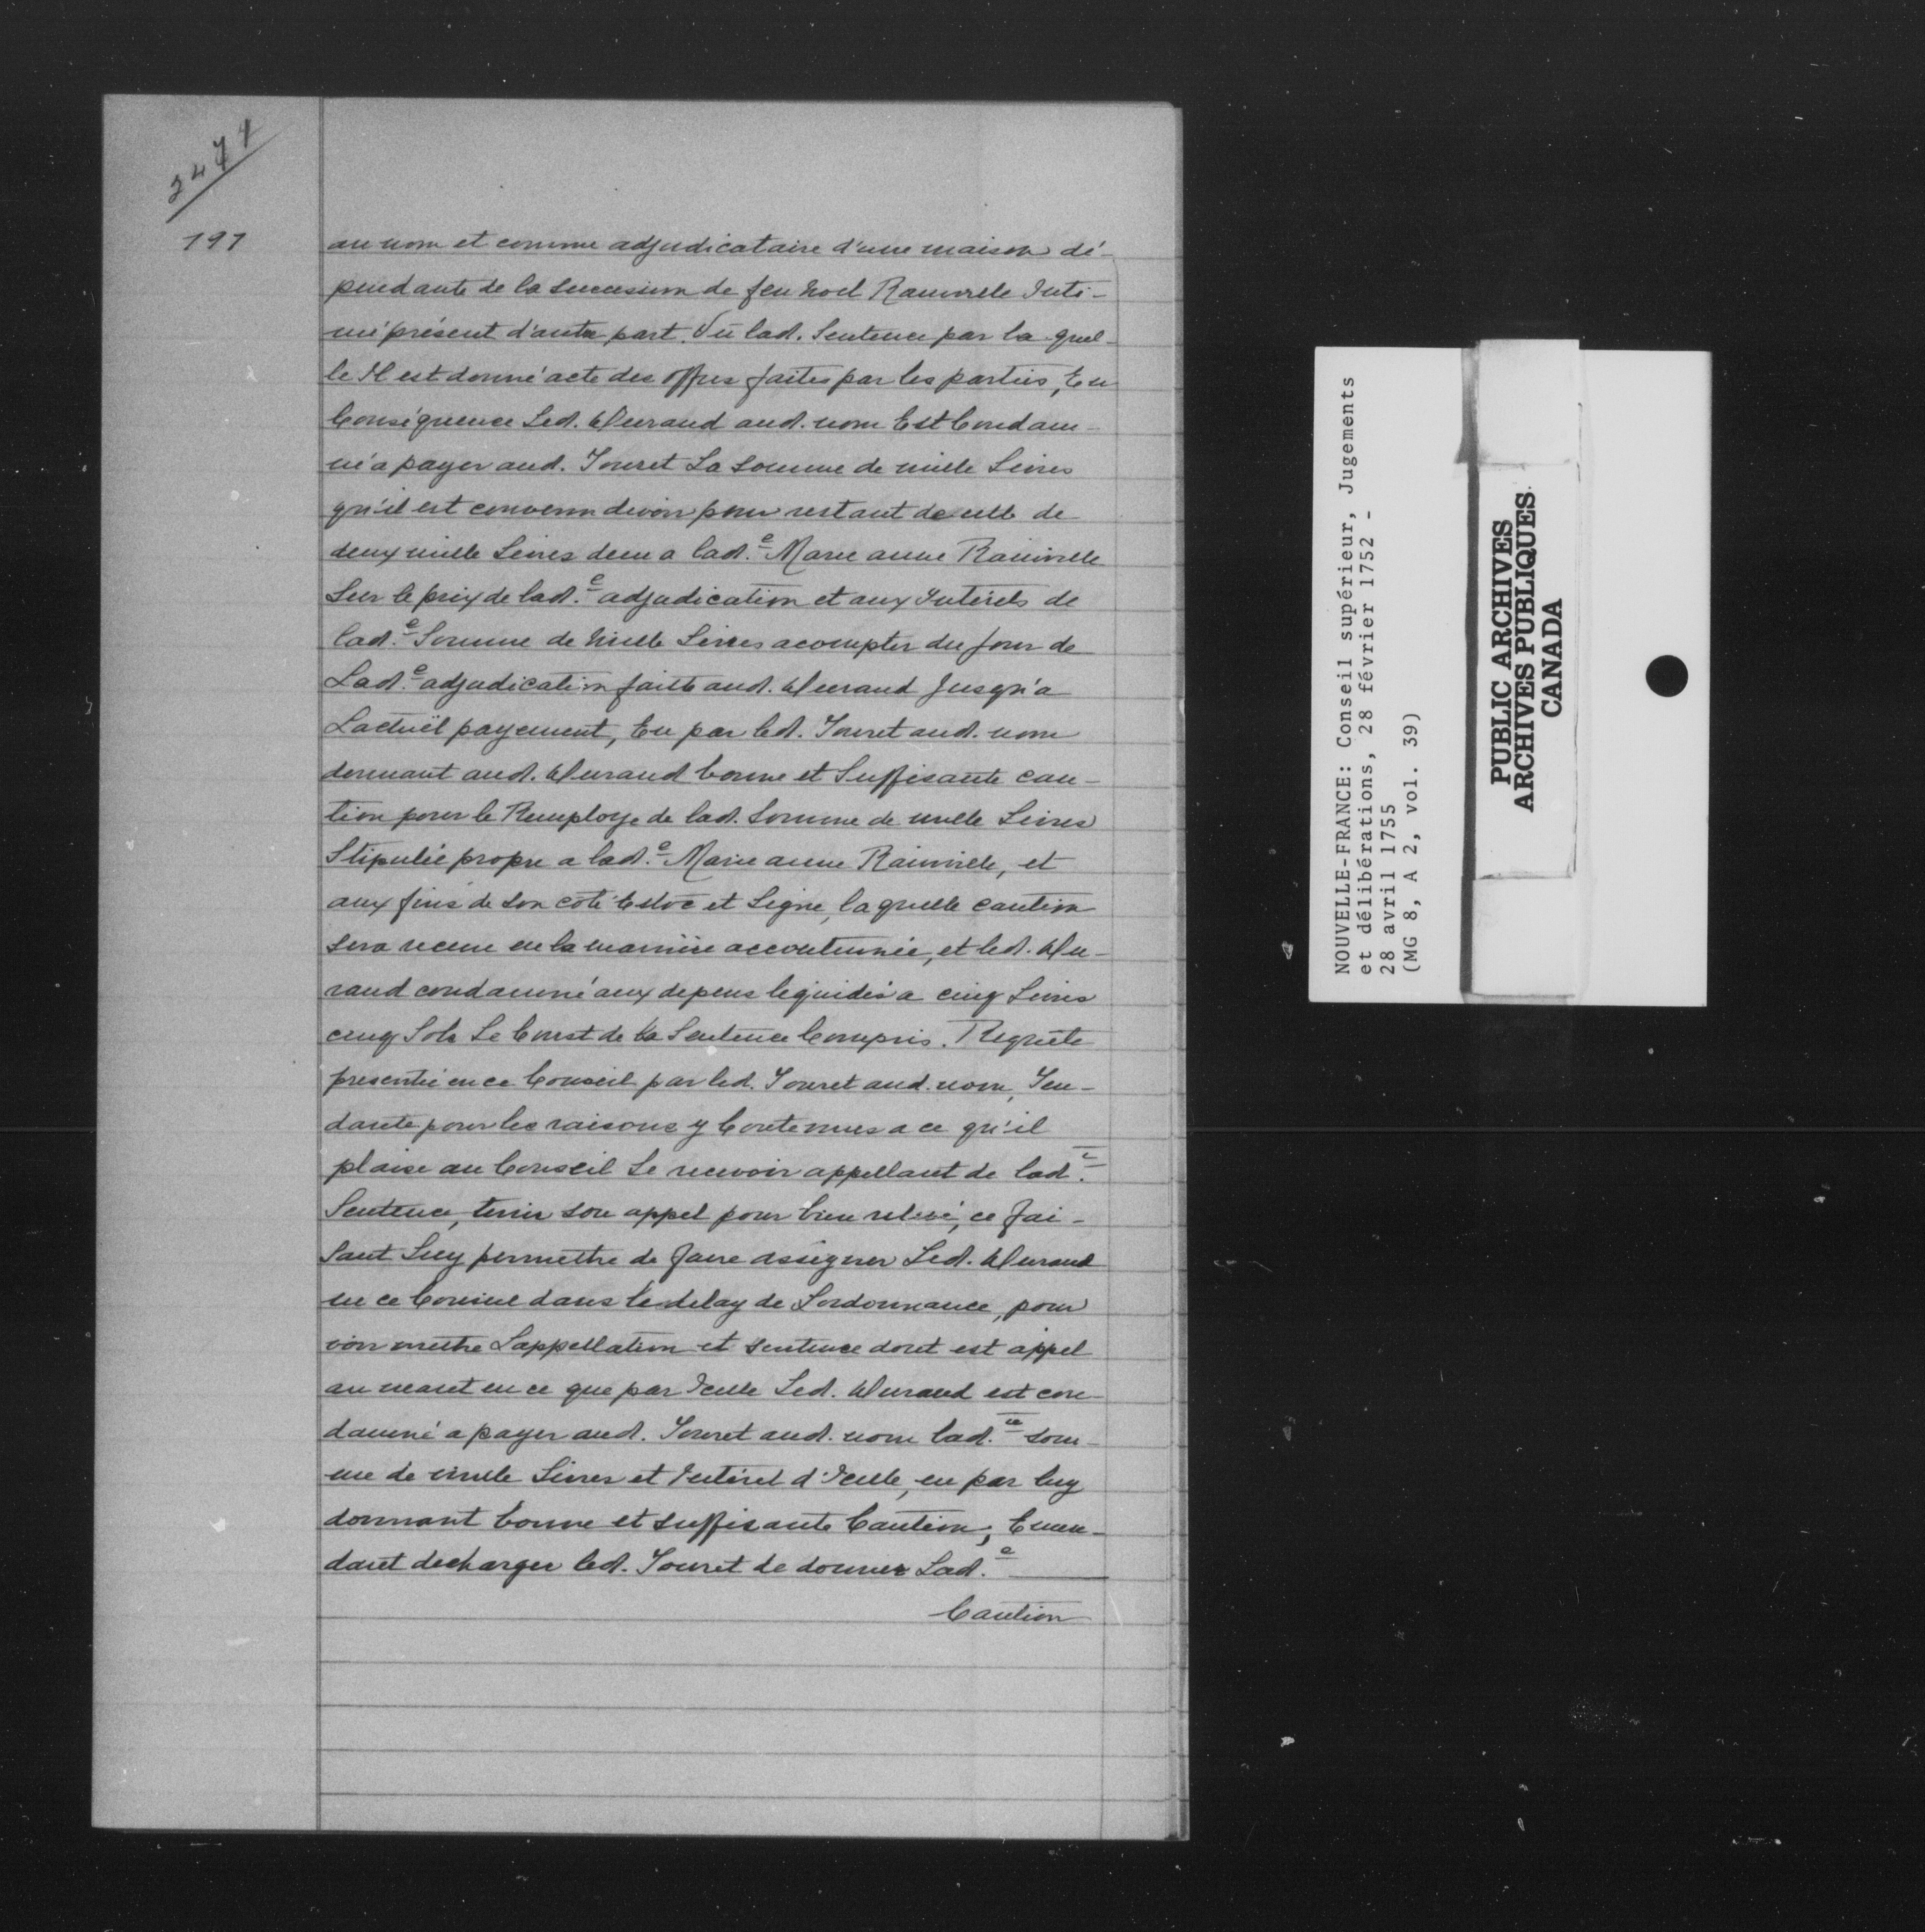 2471
191
au nom et comme adjudicataire d'une maison dé-
pendante de la succession de feu Noel Rainville Inti-
mé présent d'autre part. Vu lad. Sentence par la quel-
le Il est donné acte des offres faites par les parties, En
Conséquence Led. Durand aud. nom Est Condam-
né a payer aud. Touret La Somme de mille Livres
qu'il est convenu devoir pour restant de celle de
deux mille Livres deue a lad.e Marie anne Rainville
Sur le prix de lad.e adjudication et aux Interêts de
lad.e Somme de Mille Livres acompter du Jour de
Lad.e adjudication faitte aud. Durand Jusqu'a
Lactuël payement, En par led. Touret aud. nom
donnant aud. Durand bonne et Suffisante cau-
tion pour le Remploye de lad. Somme de mille Livres
Stipulée propre a lad.e Marie anne Rainville, et
aux fins de Son coté Estoc et Ligne, laquelle caution
Sera receue en la manière accoutumée, et led. Du-
rand condamné aux depens liquidés a cinq Livres
cinq Sols Le Coust de la Sentence Compris. Requête
presentée en ce Conseil par led. Touret aud. nom, Ten-
dante pour les raisons y Contenues a ce qu'il
plaise au Conseil Le recevoir appellant de lad.e
Sentence, tenir son appel pour bien relevé, ce fai-
sant Luy permettre de faire assigner Led. Durand
en ce Conseil dans le delay de Lordonnance, pour
voir mettre Lappellation et sentence dont est appel
au neant en ce que par Icelle Led. Durand est con-
damné a payer aud. Touret aud. nom lad. som-
me de mille Livres et Intérêt d'Icelle, en par luy
donnant bonne et suffisante Caution; Emen-
dant decharger led. Touret de donner Lad.e
Caution
NOUVELLE-FRANCE: Conseil supérieur, Jugements
et délibérations, 28 février 1752 -
28 avril 1755
(MG 8, A 2, vol. 39)
PUBLIC ARCHIVES
ARCHIVES PUBLIQUES
CANADA